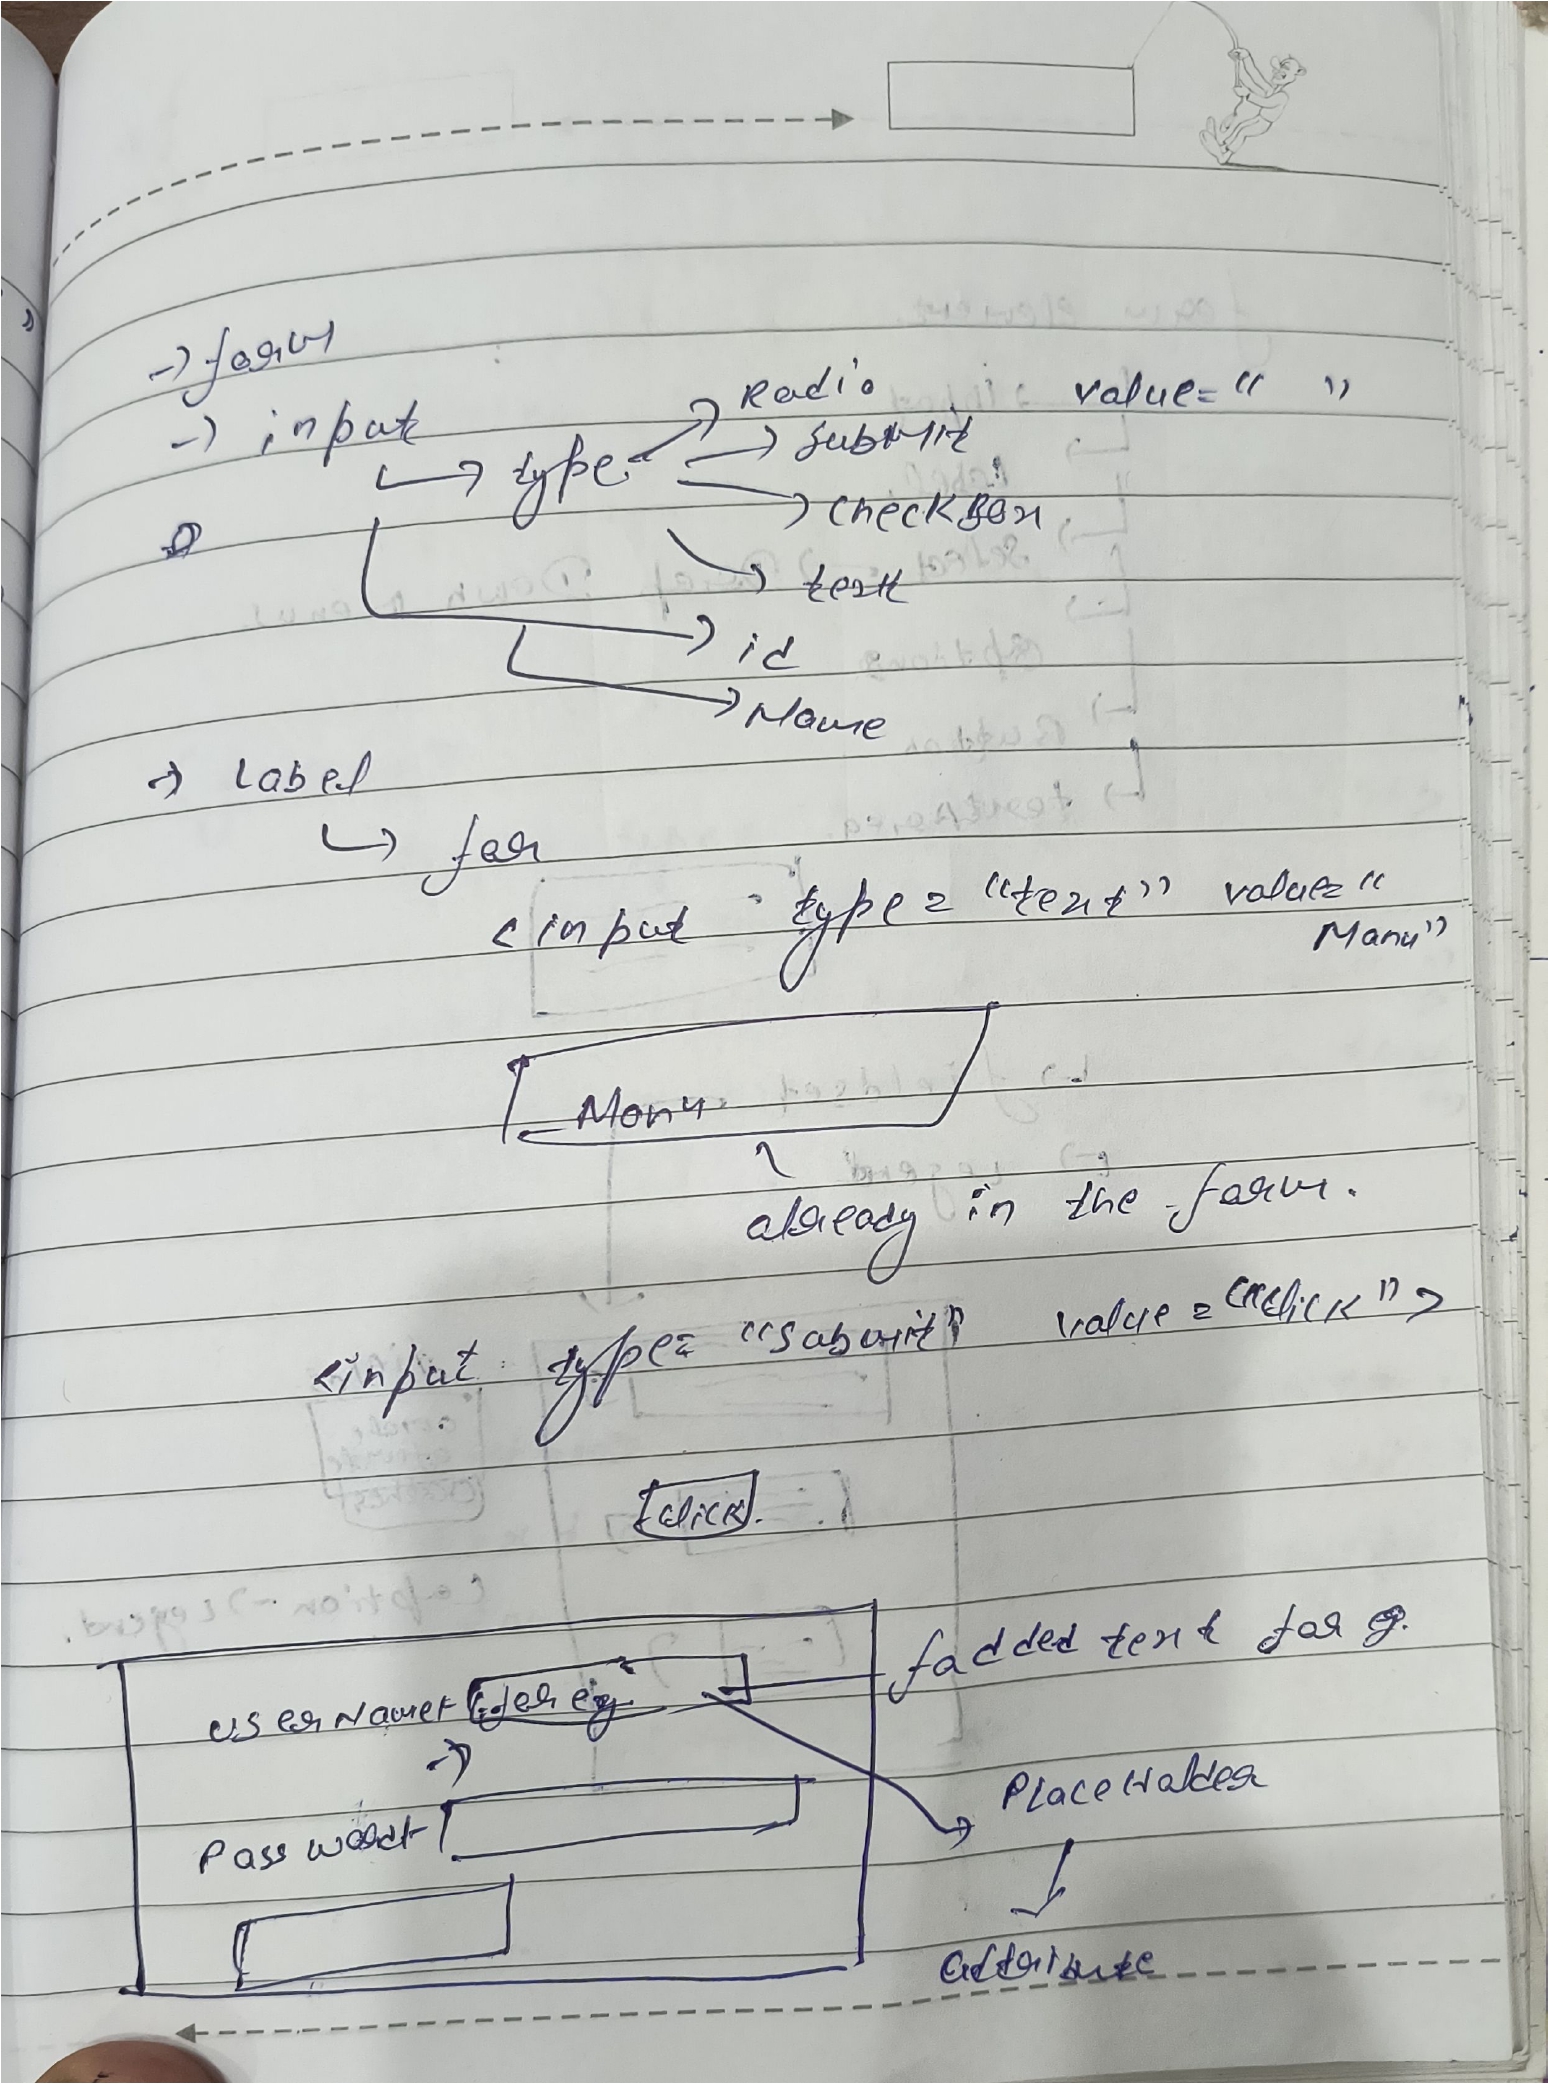 -> form
-> input
-> type -> Radio value = " "
-> submit
-> checkBox
-> text
-> id
-> Name
-> Label
-> for
<input type = "text" value = "
Manu"
Manu
already in the form.
<input type = "submit" value = "click">
click
faded text for
User Name
Password
Placeholder
attribute